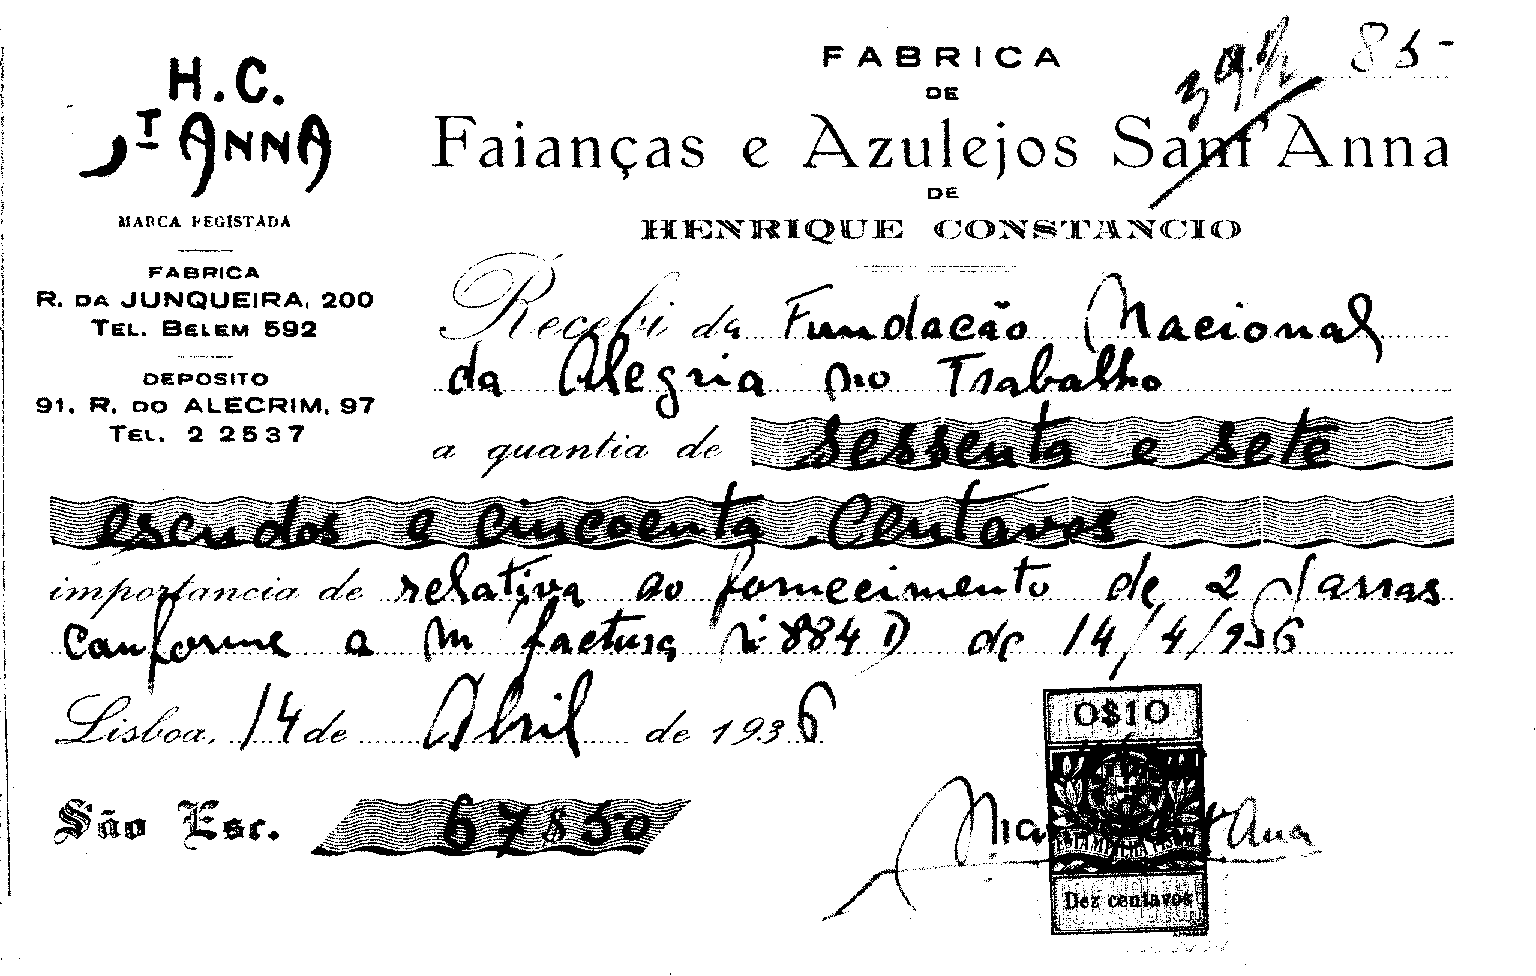 H.C.
ST ANNA
MARCA REGISTADA
FABRICA
R. DA JUNQUEIRA, 200
TEL. BELEM 592
DEPOSITO
91, R. DO ALECRIM, 97
TEL. 2 2537
85-
FABRICA
DE
Faianças e Azulejos Sant'Anna
DE
HENRIQUE CONSTANCIO
Recebi da Fundação Nacional
da Alegria no Trabalho
a quantia de sessenta e sete
escudos e cincoenta Centavos
importancia de relativa ao fornecimento de 2 Jarras
conforme a m factura nº 884 D de 14/4/936
Lisboa, 14 de Abril de 1936
São Esc. 67$50
0$10
Ana
Dez centavos